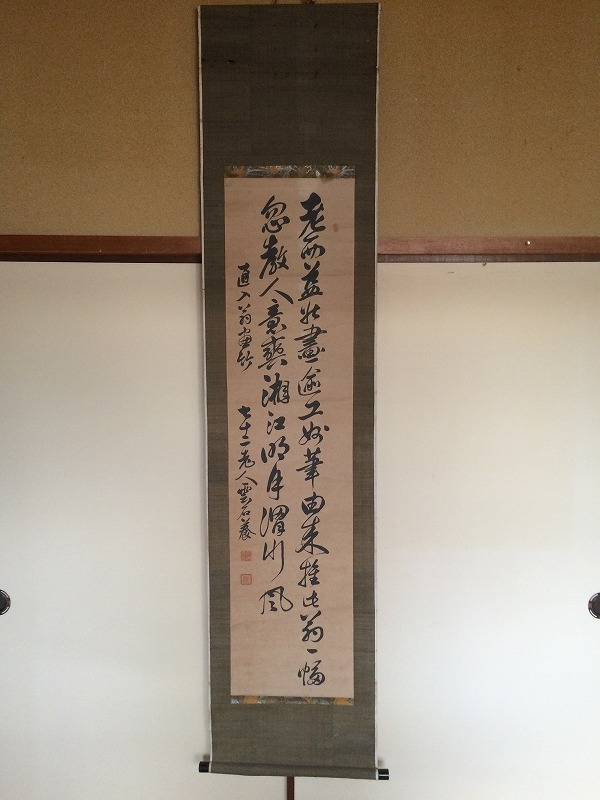 老而益壯畫逾工妙筆由来推此翁一幅
忽教人意爽湘江明月渭川風
直入翁畫竹
七十二老人雲石